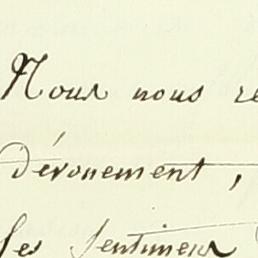 Nous nous re
dévouement,
Les sentimens